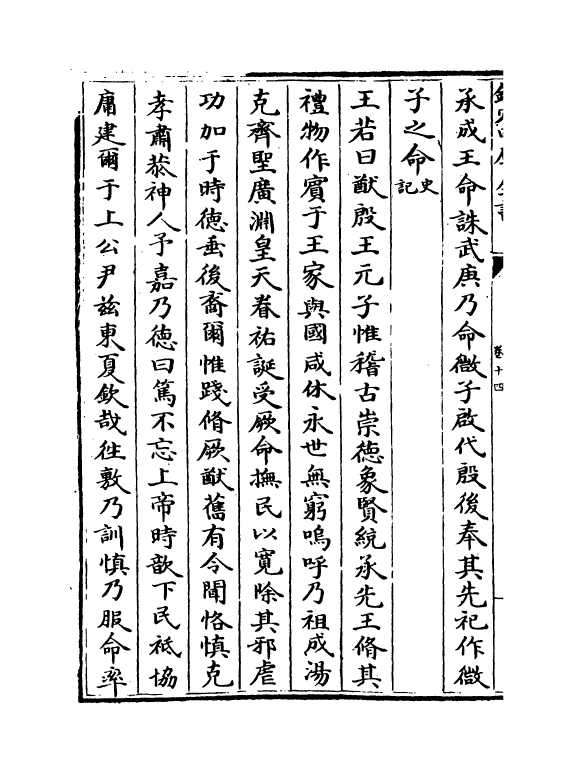 承成王命誅武庚乃命微子啟代殷後奉其先祀作微
子之命史記
王若曰猷殷王元子惟稽古崇德象賢統承先王脩其
禮物作賓于王家與國咸休永世無窮嗚呼乃祖成湯
克齊聖廣淵皇天眷祐誕受厥命撫民以寛除其邪虐
功加于時德垂後裔爾惟踐脩厥猷舊有令聞恪慎克
孝肅恭神人予嘉乃德曰篤不忘上帝時歆下民祗協
庸建爾于上公尹兹東夏欽哉往敷乃訓慎乃服命率
卷十四